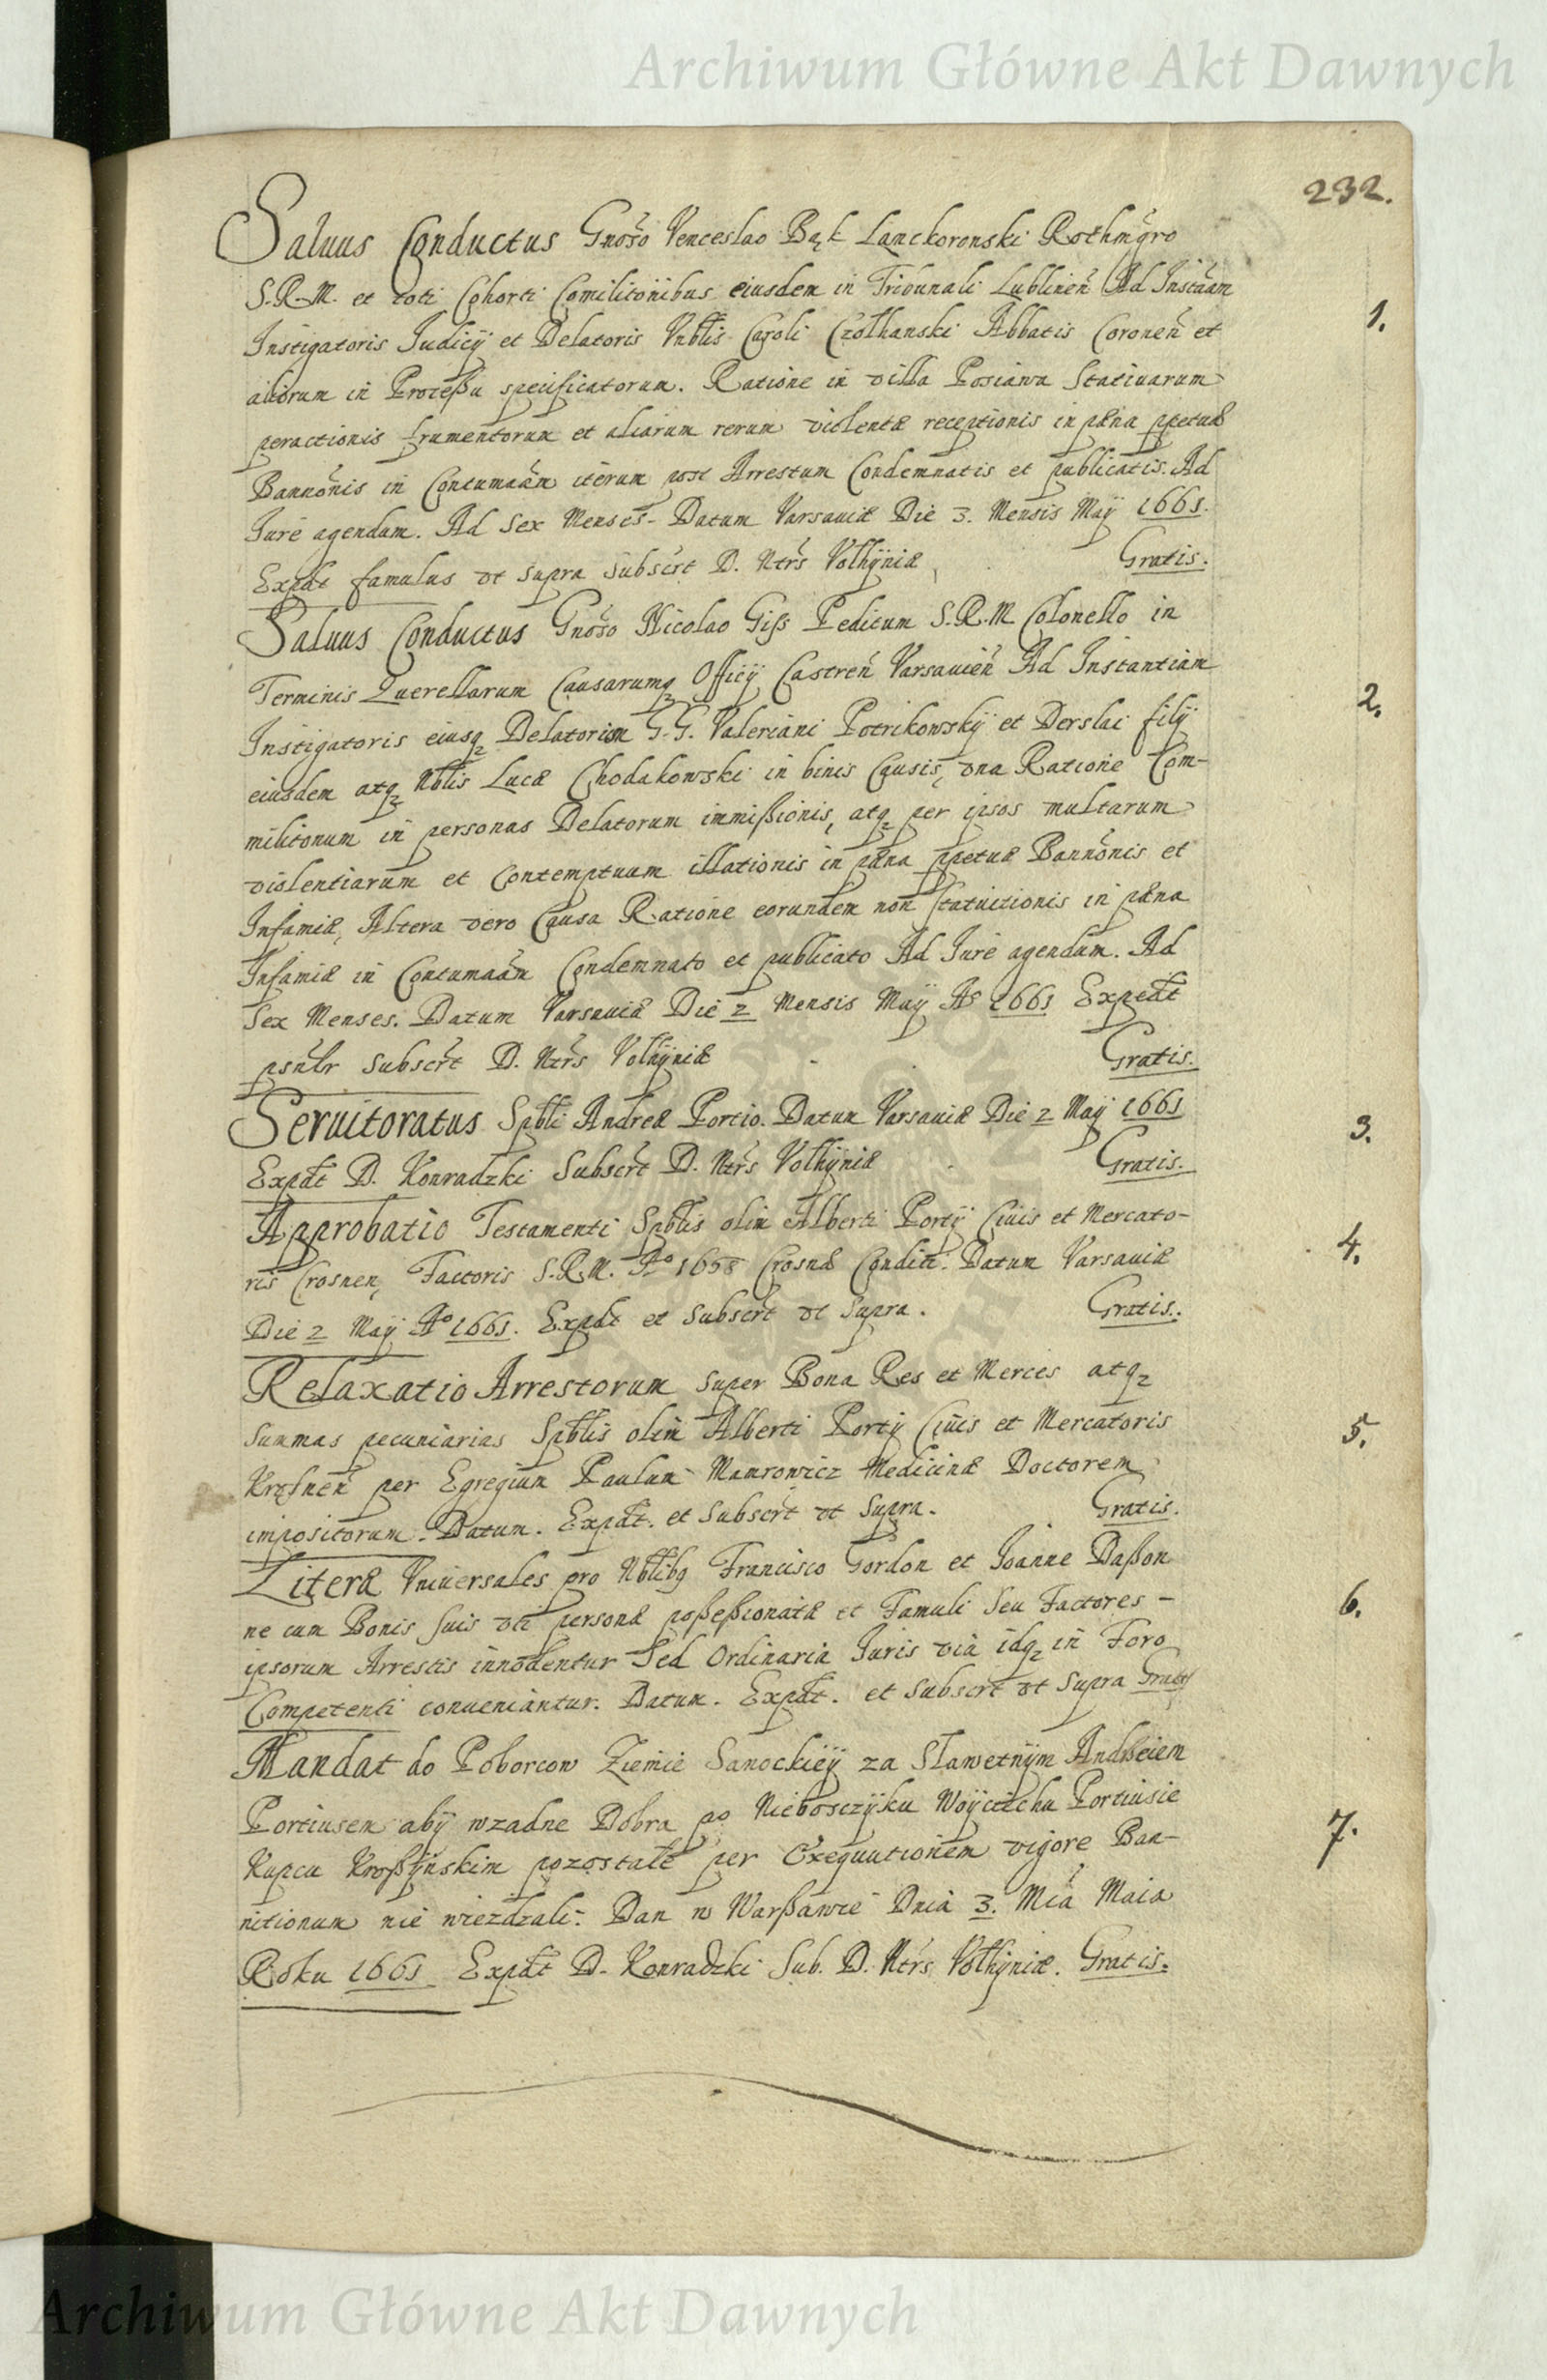 Archiwum Główne Akt Dawnych
232.
Saluus Conductus Gnoso Venceslao Bąk Lanckoronski Rothmgro
S.R.M. et toti Cohorti Comilitonibus eiusdem in Tribunali Lublinen Ad Instaam
1.
Instigatoris Judicÿ et Delatoris Vnblis Caroli Czolhanski Abbatis Coronen et
aliorum in Proceßu specificatorum. Ratione in villa Posiawa Statiuarum
peractionis frumentorum et aliarum rerum violentæ receptionis in pæna ppetuæ
Bannonis in Contumaam iterum post Arrestum Condemnatis et publicatis. Ad
Jure agendum. Ad Sex Menses. Datum Varsauiæ Die 3. Mensis Maÿ 1661.
Expdt famulus vt supra subscrt D. Ntrs Volhÿniæ Gratis.
Saluus Conductus Gnoso Nicolao Giß Peditum S.R.M Colonello in
Terminis Querellarum Causarumq Officÿ Castren Varsauien Ad Instantiam
2.
Instigatoris eiusq Delatorum G.G. Valeriani Potrikowskÿ et Derslai filÿ
eiusdem atq Nblis Lucæ Chodakowski in binis Causis, vna Ratione Com-
militonum in personas Delatorum immißionis, atq per ipsos multarum
violentiarum et Contemptuum illationis in pæna ppetuæ Bannonis et
Infamiæ, Altera vero Causa Ratione eorundem non Statuitionis in pæna
Infamiæ in Contumaam Condemnato et publicato Ad Jure agendum. Ad
Sex Menses. Datum Varsauiæ Die 2 Mensis Maÿ Ao 1661 Expedt
psnlr subscrt D. Ntrs Volhÿniæ Gratis.
Seruitoratus Spbli Andreæ Portio. Datum Varsauiæ Die 2 Maÿ 1661
3.
Expdt D. Konradzki Subscrt D. Ntrs Volhÿniæ Gratis.
Approbatio Testamenti Spblis olim Alberti Portÿ Ciuis et Mercato-
4.
ris Crosnen, Factoris S.R.M. Ao 1658 Crosnæ Condit. Datum Varsauiæ
Die 2 Maÿ Ao 1661. Expdt et Subscrt vt Supra. Gratis.
Relaxatio Arrestorum super Bona Res et Merces atq
5.
summas pecuniarias Spblis olim Alberti Portÿ Ciuis et Mercatoris
Krosnen per Egregium Paulum Mamrowicz Medicinæ Doctorem
impositorum. Datum. Expdt. et Subscrt vt Supra. Gratis.
Literæ Vniuersales pro Nblibq Francisco Gordon et Joanne Daßon
6.
ne cum Bonis suis vti personæ poßeßionatæ et Famuli Seu Factores -
ipsorum Arrestis innodentur Sed Ordinaria Juris via idq in Foro
Competenti conueniantur. Datum. Expdt. et Subscrt vt Supra Gratis
Mandat do Poborcow Ziemie Sanockieÿ za Sławetnÿm Andrzeiem
Portiusem abÿ wzadne Dobra po Nieboszczÿku Woÿciechu Portiusie
7.
Kupcu Kroßÿnskim pozostałe per Exequutionem vigore Ban-
nitionum nie wiezdzali. Dan w Warßawie Dnia 3. Mca Maia
Roku 1661 Expdt D. Konradzki Sub. D. Ntrs Volhÿniæ. Gratis.
Archiwum Główne Akt Dawnych